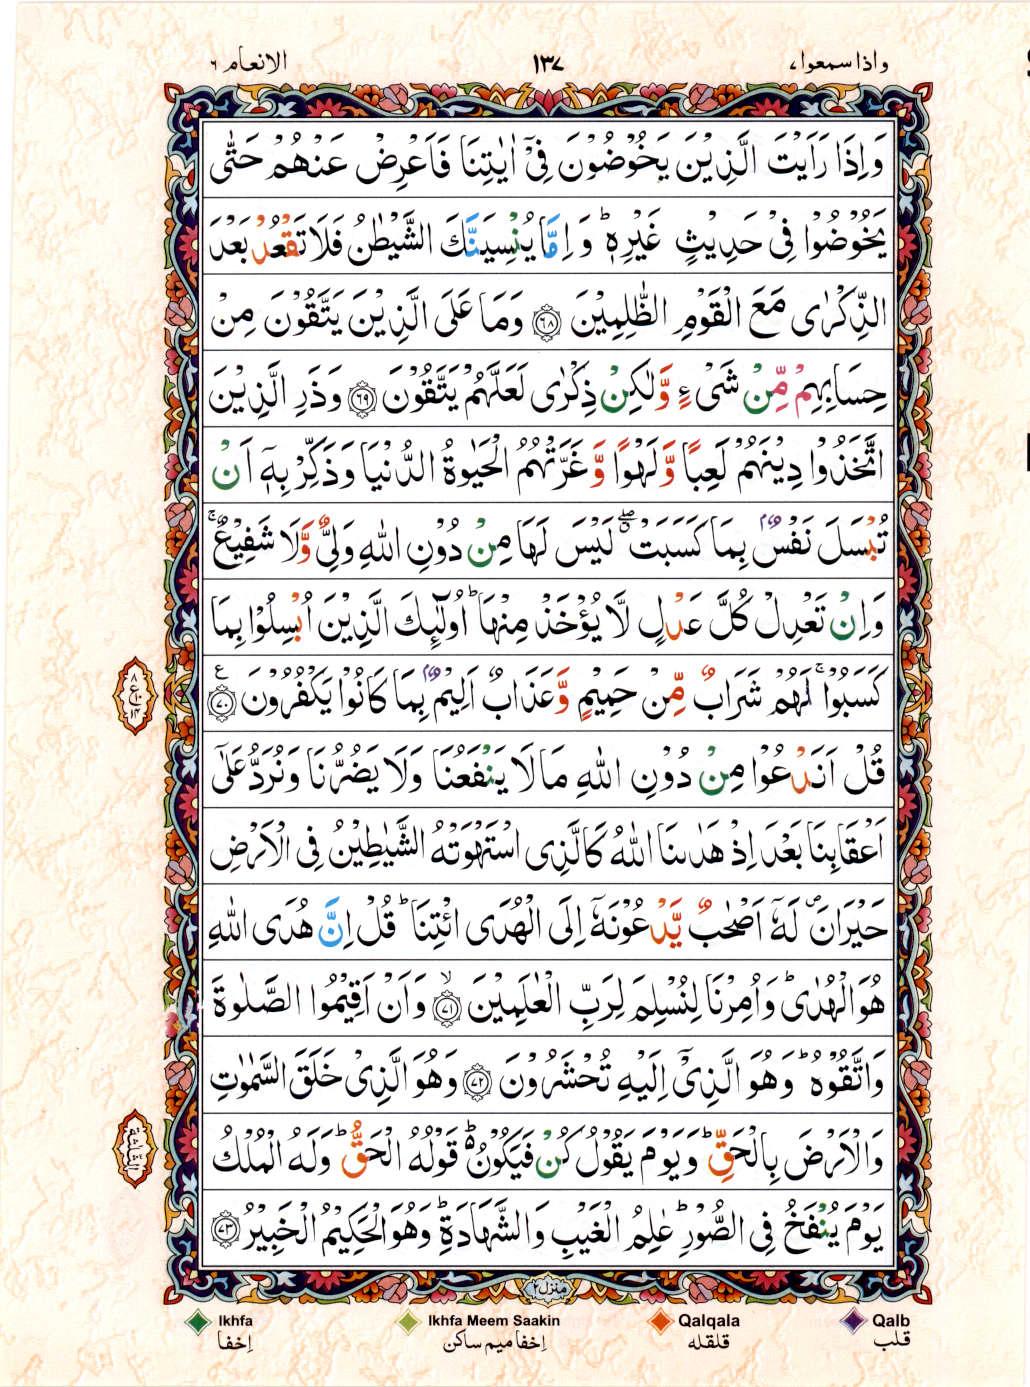 واذا سمعوا ۷
١٣٧
الانعام ٦
وَاِذَا رَاَيْتَ الَّذِيْنَ يَخُوْضُوْنَ فِيْۤ اٰيٰتِنَا فَاَعْرِضْ عَنْهُمْ حَتّٰى
يَخُوْضُوْا فِيْ حَدِيْثٍ غَيْرِهٖ ؕ وَاِمَّا يُنْسِيَنَّكَ الشَّيْطٰنُ فَلَا تَقْعُدْ بَعْدَ
الذِّكْرٰى مَعَ الْقَوْمِ الظّٰلِمِيْنَ ۝۶۸ وَمَا عَلَى الَّذِيْنَ يَتَّقُوْنَ مِنْ
حِسَابِهِمْ مِّنْ شَىْءٍ وَّلٰكِنْ ذِكْرٰى لَعَلَّهُمْ يَتَّقُوْنَ ۝۶۹ وَذَرِ الَّذِيْنَ
اتَّخَذُوْا دِيْنَهُمْ لَعِبًا وَّلَهْوًا وَّغَرَّتْهُمُ الْحَيٰوةُ الدُّنْيَا وَذَكِّرْ بِهٖۤ اَنْ
تُبْسَلَ نَفْسٌۢ بِمَا كَسَبَتْ ۖۗ لَيْسَ لَهَا مِنْ دُوْنِ اللّٰهِ وَلِيٌّ وَّلَا شَفِيْعٌ ۚ
وَاِنْ تَعْدِلْ كُلَّ عَدْلٍ لَّا يُؤْخَذْ مِنْهَا ؕ اُولٰٓئِكَ الَّذِيْنَ اُبْسِلُوْا بِمَا
كَسَبُوْا ۚ لَهُمْ شَرَابٌ مِّنْ حَمِيْمٍ وَّعَذَابٌ اَلِيْمٌۢ بِمَا كَانُوْا يَكْفُرُوْنَ ۝۷۰ ع
٨
ع ١٠
١٤
قُلْ اَنَدْعُوْا مِنْ دُوْنِ اللّٰهِ مَا لَا يَنْفَعُنَا وَلَا يَضُرُّنَا وَنُرَدُّ عَلٰٓى
اَعْقَابِنَا بَعْدَ اِذْ هَدٰىنَا اللّٰهُ كَالَّذِى اسْتَهْوَتْهُ الشَّيٰطِيْنُ فِى الْاَرْضِ
حَيْرَانَ ۪ لَهٗۤ اَصْحٰبٌ يَّدْعُوْنَهٗۤ اِلَى الْهُدَى ائْتِنَا ؕ قُلْ اِنَّ هُدَى اللّٰهِ
هُوَ الْهُدٰى ؕ وَاُمِرْنَا لِنُسْلِمَ لِرَبِّ الْعٰلَمِيْنَ ۝۷۱ۙ وَاَنْ اَقِيْمُوا الصَّلٰوةَ
وَاتَّقُوْهُ ؕ وَهُوَ الَّذِيْۤ اِلَيْهِ تُحْشَرُوْنَ ۝۷۲ وَهُوَ الَّذِيْ خَلَقَ السَّمٰوٰتِ
وَالْاَرْضَ بِالْحَقِّ ؕ وَيَوْمَ يَقُوْلُ كُنْ فَيَكُوْنُ ؕ۬ قَوْلُهُ الْحَقُّ ؕ وَلَهُ الْمُلْكُ
الثلثة
يَوْمَ يُنْفَخُ فِى الصُّوْرِ ؕ عٰلِمُ الْغَيْبِ وَالشَّهَادَةِ ؕ وَهُوَ الْحَكِيْمُ الْخَبِيْرُ ۝۷۳
منزل ٢
Ikhfa
اِخفا
Ikhfa Meem Saakin
اِخفا میم ساکن
Qalqala
قلقله
Qalb
قلب